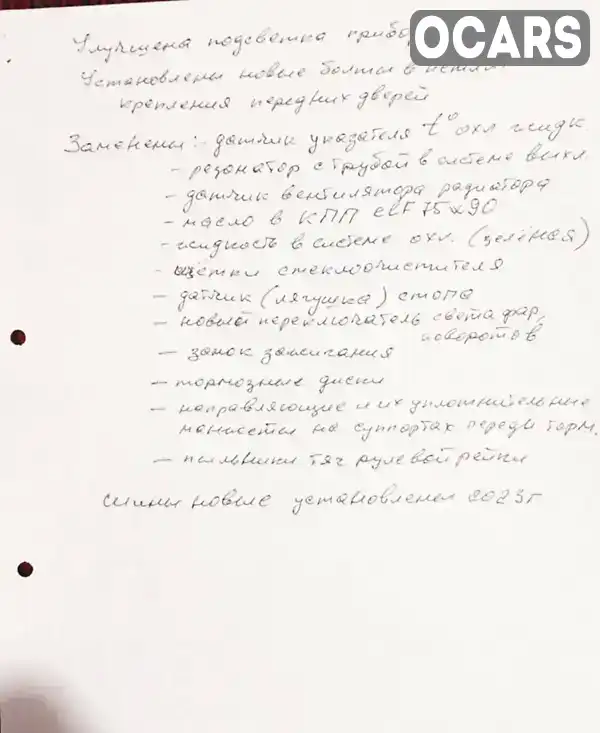 Улучшена подсветка прибор
OCARS
Установлены новые болты в петли
крепления передних дверей
Заменены: - датчик указателя t° охл жидк
- резонатор с трубой в системе выхл
- датчик вентилятора радиатора
- масло в КПП elf 75w90
- жидкость в системе охл. (зелёная)
- щетки стеклоочистителя
- датчик (лягушка) стопа
- новый переключатель света фар,
поворотов
- замок зажигания
- тормозные диски
- направляющие и их уплотнительные
манжеты на суппортах передн торм.
- пыльники тяг рулевой рейки
Шины новые установлены 2023г